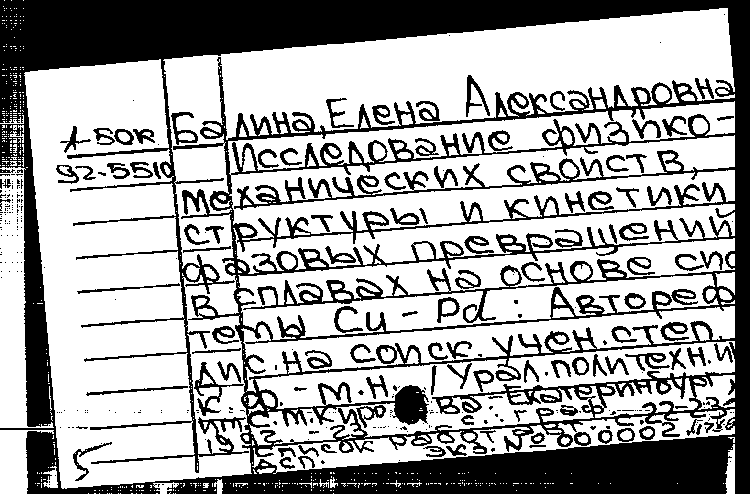 1-50к
92-5510
Балина, Елена Александровна
Исследование физико-
механических свойств,
структуры и кинетики
фазовых превращений
в сплавах на основе сис
темы Cu-Pd : Автореф
дис. на соиск. учен. степ.
к. ф.-м.н. / Урал. политехн. и
им. С.М. Киро ва. - Екатеринбург,
1992. - 23 с. : граф.
Список работ авт.: с. 22-23
Дсп. Экз. № 000002
5